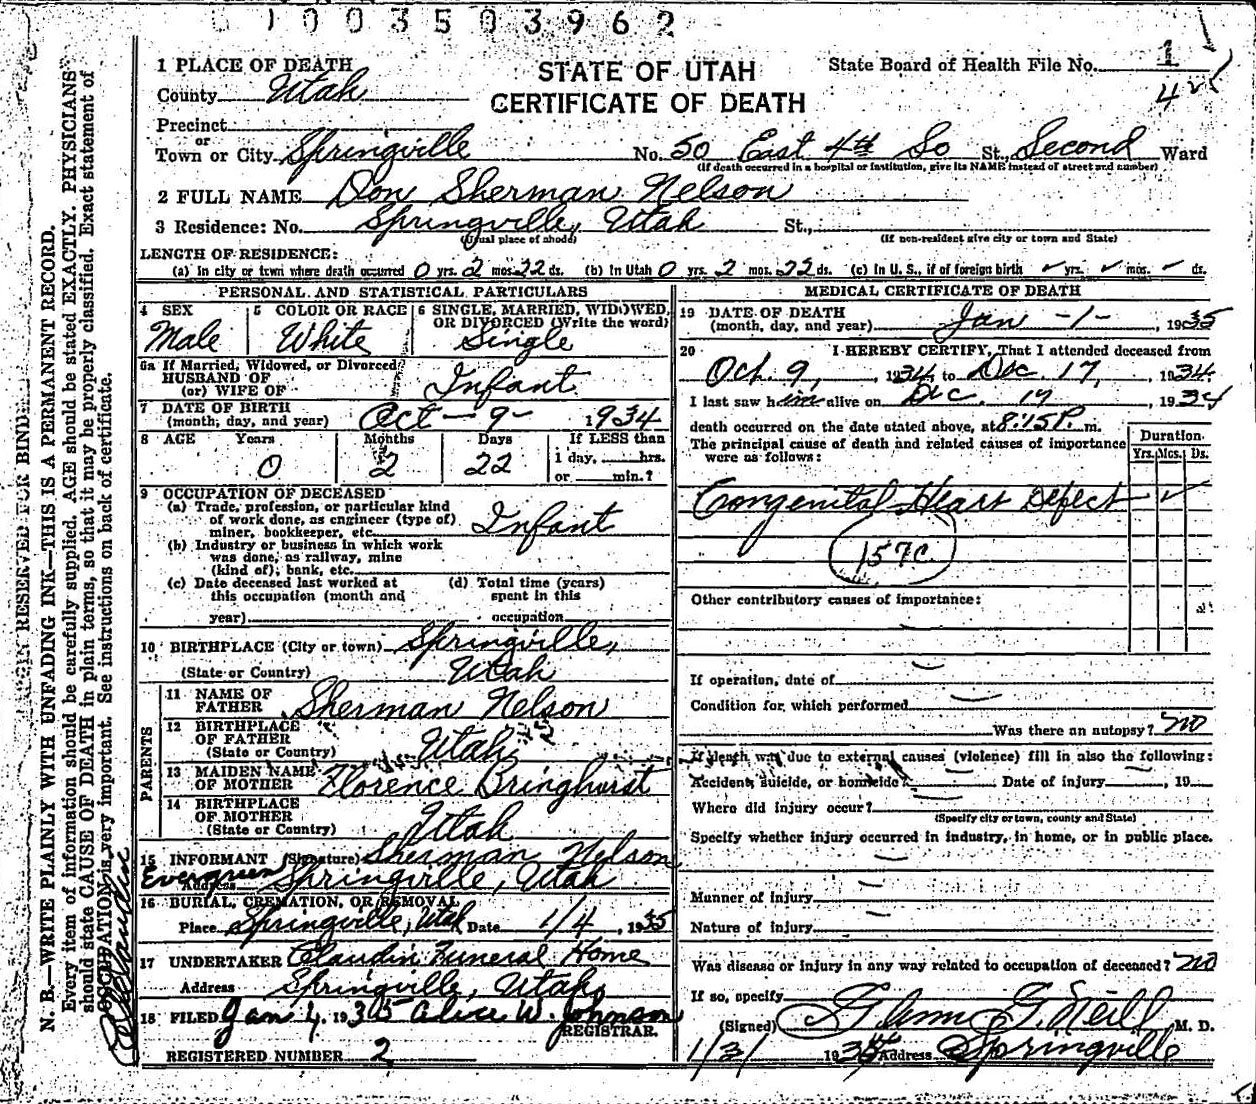 1003503962
1 PLACE OF DEATH
STATE OF UTAH
CERTIFICATE OF DEATH
State Board of Health File No. 1
4
County Utah
Precinct
or
Town or City Springville No. 50 East 4th So St., Second Ward
(If death occurred in a hospital or institution, give its NAME instead of street and number)
2 FULL NAME Don Sherman Nelson
3 Residence: No. Springville, Utah St.,
(Usual place of abode) (If non-resident give city or town and State)
LENGTH OF RESIDENCE:
(a) In city or town where death occurred 0 yrs. 2 mos. 22 ds. (b) In Utah 0 yrs. 2 mos. 22 ds. (c) In U. S., if of foreign birth ✓ yrs. ✓ mos. ✓ ds.
PERSONAL AND STATISTICAL PARTICULARS
4 SEX
Male
5 COLOR OR RACE
White
6 SINGLE, MARRIED, WIDOWED,
OR DIVORCED (Write the word)
Single
6a If Married, Widowed, or Divorced
HUSBAND OF
(or) WIFE OF
Infant
7 DATE OF BIRTH
(month, day, and year) Oct - 9 - 1934
8 AGE Years Months Days If LESS than
1 day, hrs.
or min.?
0 2 22
9 OCCUPATION OF DECEASED
(a) Trade, profession, or particular kind
of work done, as engineer (type of)
miner, bookkeeper, etc. Infant
(b) Industry or business in which work
was done, as railway, mine
(kind of); bank, etc.
(c) Date deceased last worked at
this occupation (month and
year)
(d) Total time (years)
spent in this
occupation
10 BIRTHPLACE (City or town) Springville,
(State or Country) Utah
PARENTS
11 NAME OF
FATHER Sherman Nelson
12 BIRTHPLACE
OF FATHER
(State or Country) Utah
13 MAIDEN NAME
OF MOTHER Florence Bringhurst
14 BIRTHPLACE
OF MOTHER
(State or Country) Utah
15 INFORMANT (Signature) Sherman Nelson
Evergreen
Address Springville, Utah
16 BURIAL, CREMATION, OR REMOVAL
Place Springville, Utah Date 1/4, 1935
17 UNDERTAKER Claudin Funeral Home
Address Springville, Utah,
18 FILED Jan 4, 1935 Alice W. Johnson
REGISTRAR.
REGISTERED NUMBER 2
MEDICAL CERTIFICATE OF DEATH
19 DATE OF DEATH
(month, day, and year) Jan -1-, 1935
20 I HEREBY CERTIFY, That I attended deceased from
Oct. 9, 1934 to Dec. 17, 1934.
I last saw him alive on Dec. 17, 1934
death occurred on the date stated above, at 8:15 P. m.
The principal cause of death and related causes of importance
were as follows:
Duration
Yrs. Mos. Ds.
Congenital Heart Defect ✓
157C.
Other contributory causes of importance:
If operation, date of
Condition for which performed
Was there an autopsy? no
If death was due to external causes (violence) fill in also the following:
Accident, suicide, or homicide? Date of injury , 19
Where did injury occur?
(Specify city or town, county and State)
Specify whether injury occurred in industry, in home, or in public place.
Manner of injury
Nature of injury
Was disease or injury in any way related to occupation of deceased? no
If so, specify
(Signed) Glenn G. Neill M. D.
1/3/ 1935 Address Springville
MARGIN RESERVED FOR BINDING
N. B.—WRITE PLAINLY WITH UNFADING INK—THIS IS A PERMANENT RECORD.
Every item of information should be carefully supplied. AGE should be stated EXACTLY. PHYSICIANS
should state CAUSE OF DEATH in plain terms, so that it may be properly classified. Exact statement of
OCCUPATION is very important. See instructions on back of certificate.